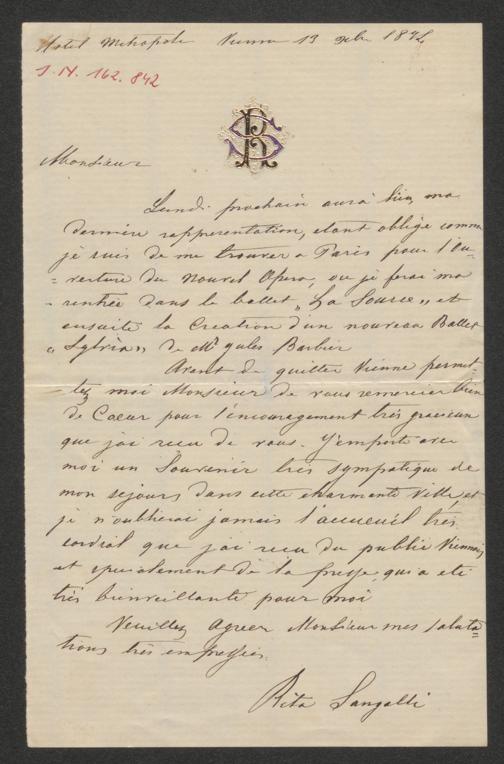 Hotel Metropole Vienne 13 Xbre 1874
I.N. 162.842
RS
Monsieur
Lundi prochain aura lieu ma
dernière rappresentation, etant obligé comme
je suis de me trouver a Paris pour l'Ou-
=verture du Nouvel Opera, ou je ferai ma
-rentrée dans le ballet „La Source„ et
ensuite la Creation d'un nouveau Ballet
„Sylvia„ de Mr Jules Barbier
Avant de quitter Vienne permet-
tez moi Monsieur de vous remercier bien
de Coeur pour l'encouragement très gracieux
que j'ai recu de vous. J'emporte avec
moi un Souvenir très sympatique de
mon sejour dans cette charmante Ville, et
je n'oublierai jamais l'accueuil très
cordial que j'ai recu du public Viennois
et specialement de la presse, qui a eté
très bienveillante pour moi
Veuillez Agreer Monsieur mes saluta=
tions très empressées
Rita Sangalli